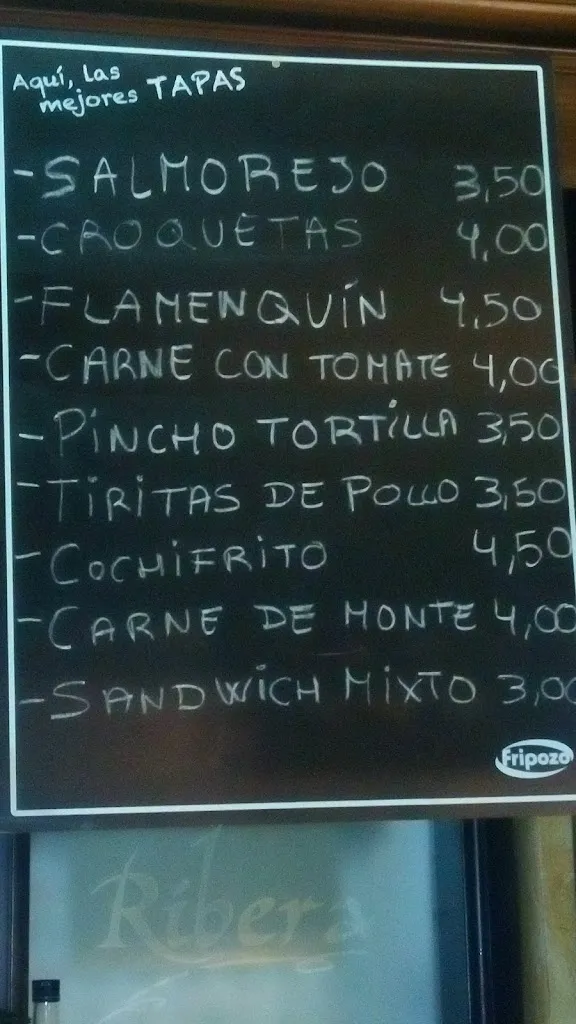 Aquí, las
mejores TAPAS
- SALMOREJO 3,50
- CROQUETAS 4,00
- FLAMENQUÍN 4,50
- CARNE CON TOMATE 4,00
- PINCHO TORTILLA 3,50
- TIRITAS DE POLLO 3,50
- COCHIFRITO 4,50
- CARNE DE MONTE 4,00
- SANDWICH MIXTO 3,00
Fripozo
Ribera